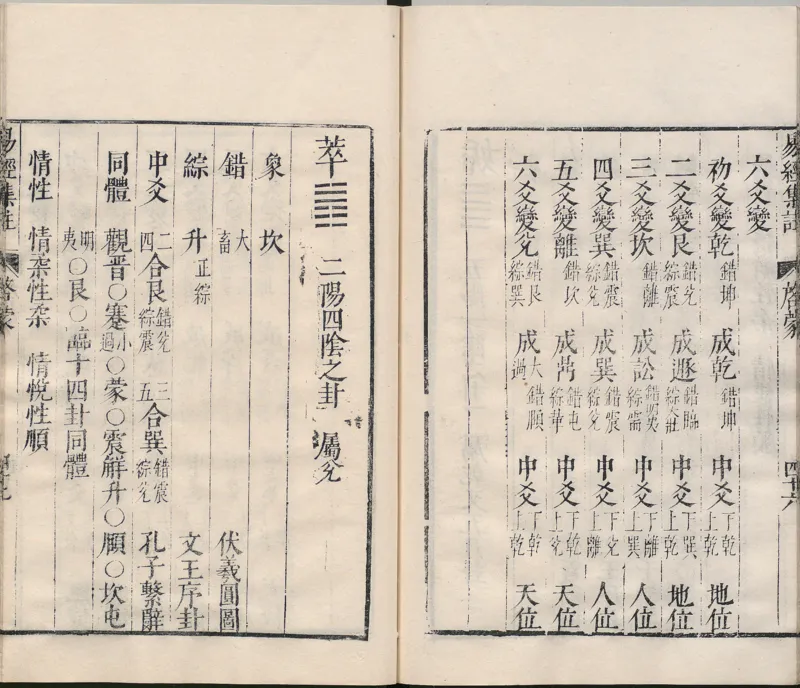 易經集註 啓蒙 四十六
六爻變
初爻變乾 錯坤 成乾 錯坤 中爻 下乾 上乾 地位
二爻變艮 錯兌 綜震 成遯 錯臨 綜大壯 中爻 下巽 上乾 地位
三爻變坎 錯離 成訟 錯明夷 綜需 中爻 下離 上巽 人位
四爻變巽 錯震 綜兌 成巽 錯震 綜兌 中爻 下兌 上離 人位
五爻變離 錯坎 成鼎 錯屯 綜革 中爻 下乾 上兌 天位
六爻變兌 錯艮 綜巽 成大過 錯頤 中爻 下乾 上乾 天位
萃䷬ 二陽四陰之卦 屬兌
象 坎
錯 大畜 伏羲圓圖
綜 升 正綜 文王序卦
中爻 二四合艮 錯兌 綜震 三五合巽 錯震 綜兌 孔子繫辭
同體 觀晉○蹇小過○蒙○震解升○頤○坎屯
明夷○艮○臨十四卦同體
情性 情柔性柔 情悅性順
易經集註 啓蒙 四十七